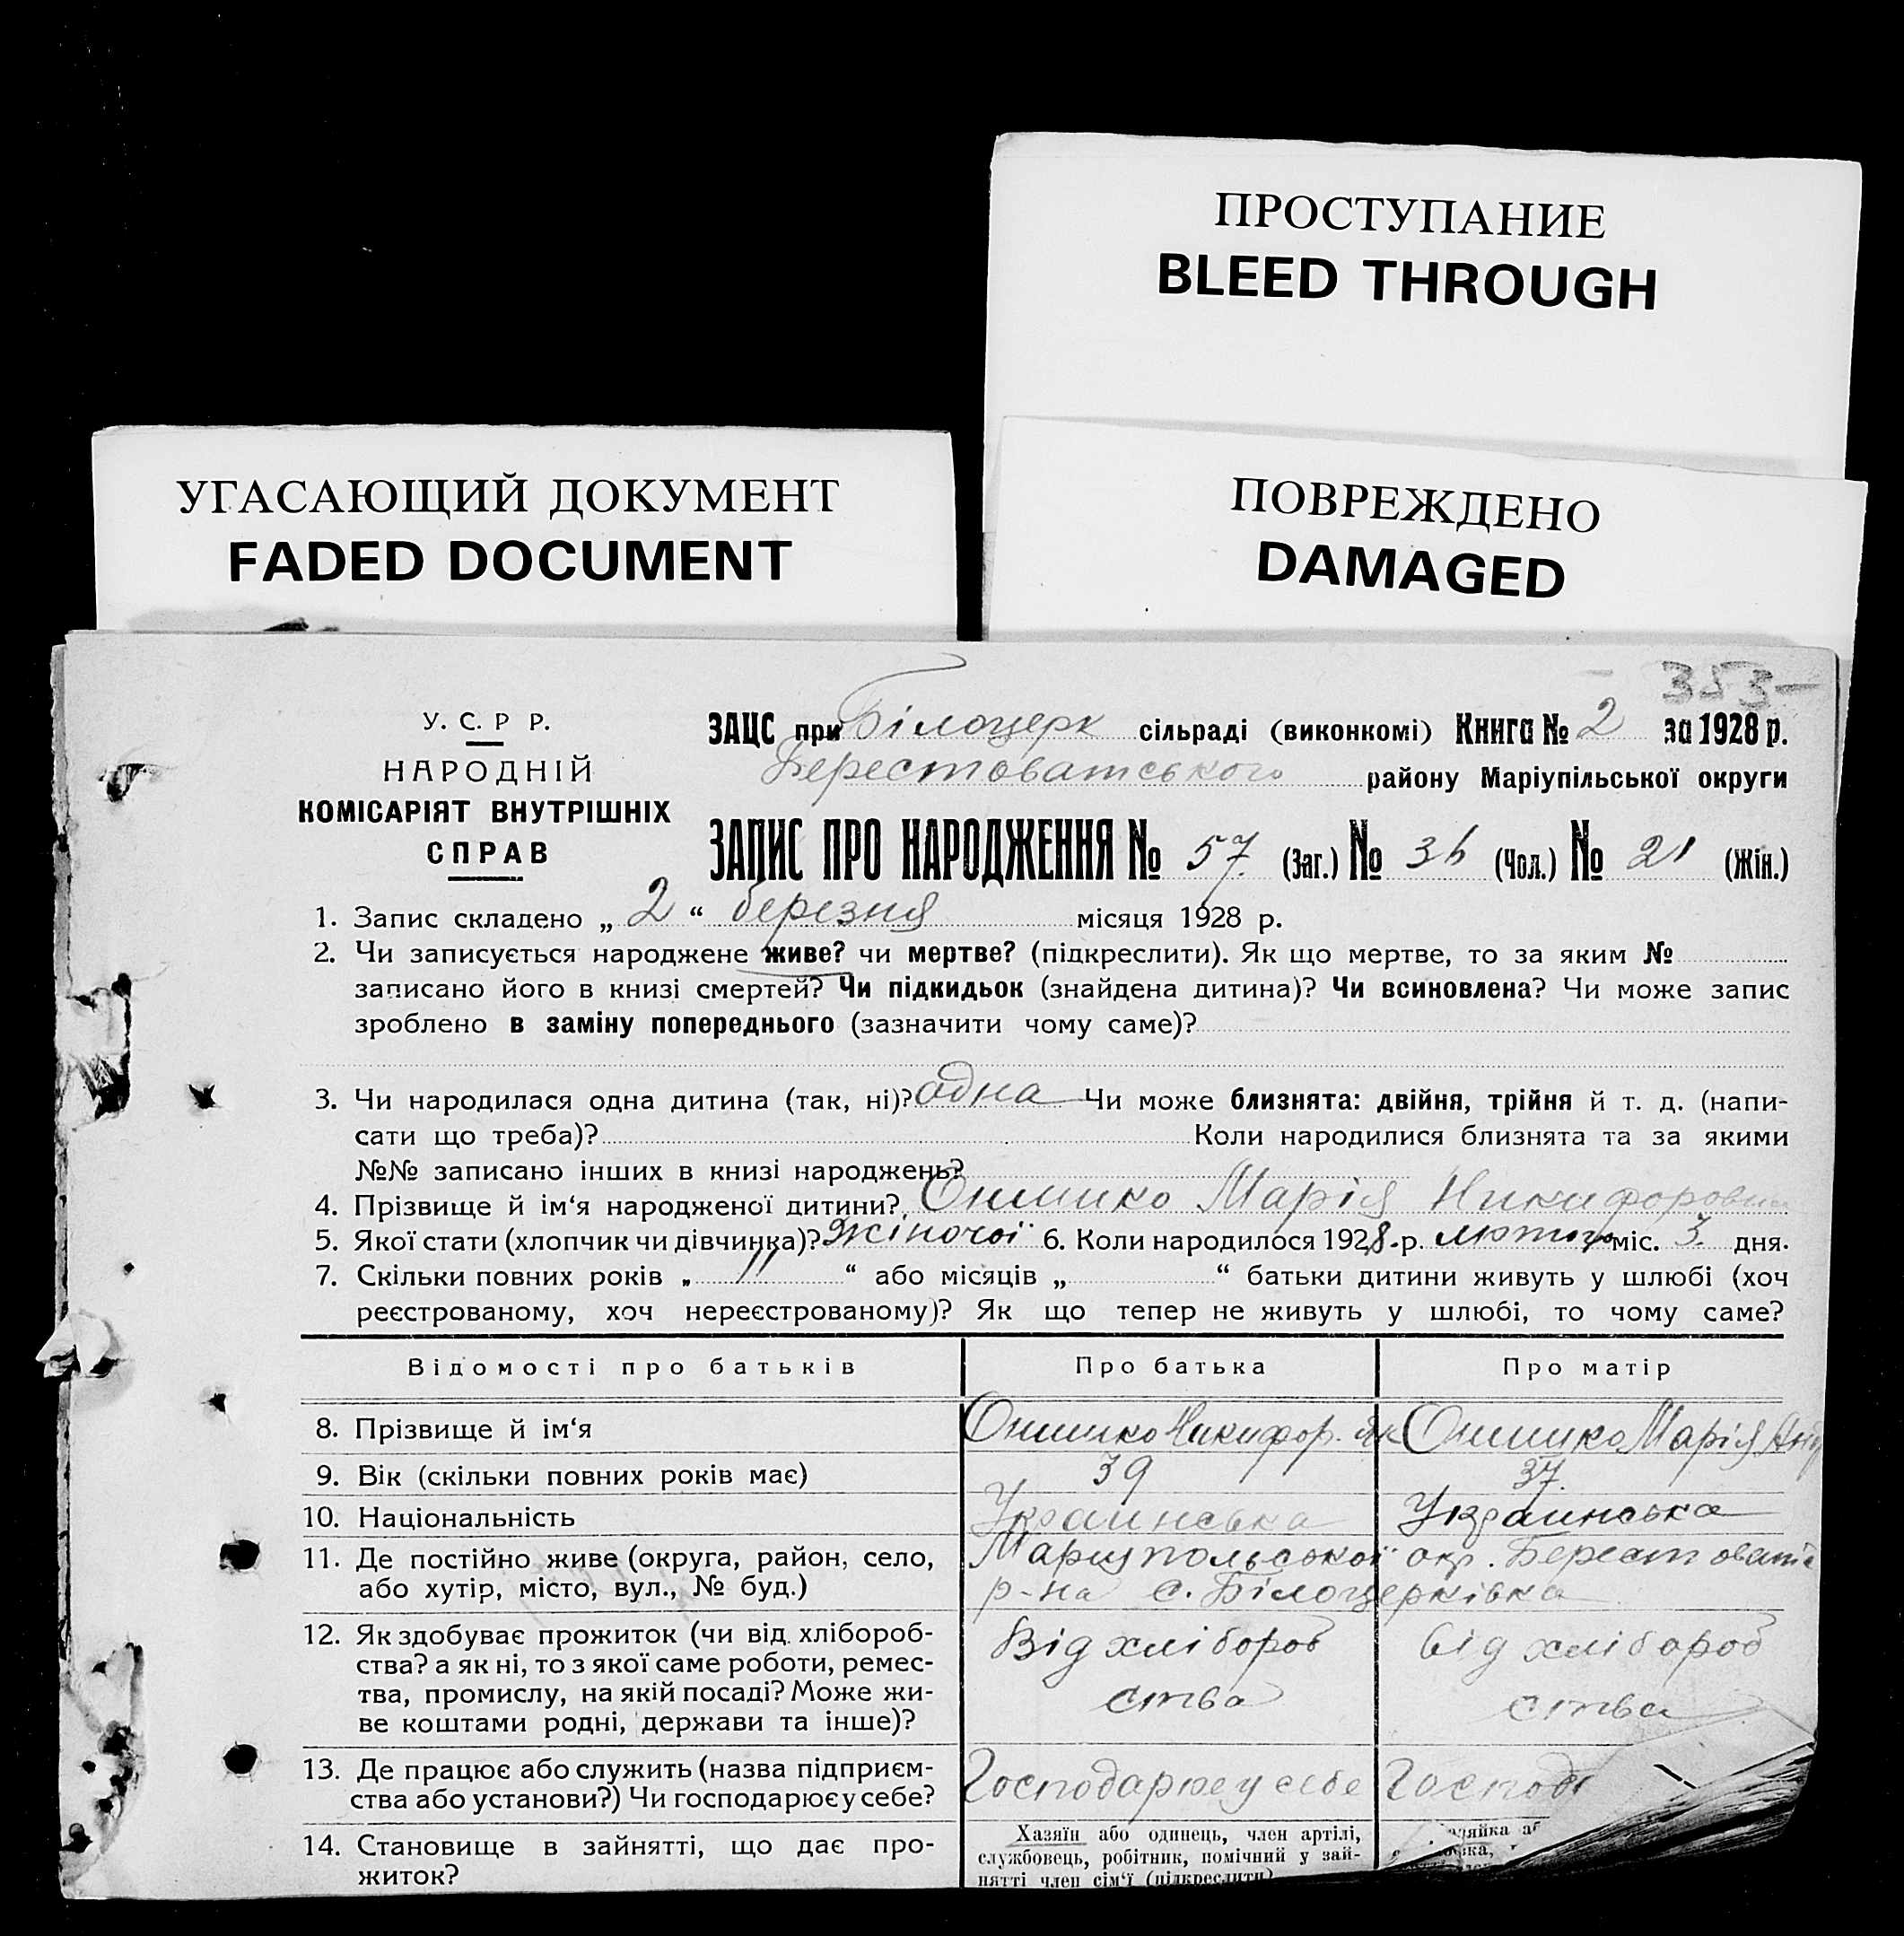 ПРОСТУПАНИЕ
BLEED THROUGH
УГАСАЮЩИЙ ДОКУМЕНТ
FADED DOCUMENT
ПОВРЕЖДЕНО
DAMAGED
353
У. С. Р Р.
НАРОДНІЙ
КОМІСАРІЯТ ВНУТРІШНІХ
СПРАВ
ЗАЦС при Білоцерк сільраді (виконкомі) Книга № 2 за 1928 р.
Берестоватського району Маріупільської округи
ЗАПИС ПРО НАРОДЖЕННЯ № 57 (Заг.) № 36 (Чол.) № 21 (Жін.)
1. Запис складено „ 2 “ березня місяця 1928 р.
2. Чи записується народжене живе? чи мертве? (підкреслити). Як що мертве, то за яким №
записано його в книзі смертей? Чи підкидьок (знайдена дитина)? Чи всиновлена? Чи може запис
зроблено в заміну попереднього (зазначити чому саме)?
3. Чи народилася одна дитина (так, ні)? одна Чи може близнята: двійня, трійня й т. д. (напи-
сати що треба)? Коли народилися близнята та за якими
№№ записано інших в книзі народжень?
4. Прізвище й ім‘я народженої дитини? Онишко Марія Никифоровна
5. Якої стати (хлопчик чи дівчинка)? Жіночої 6. Коли народилося 1928 р. лютого міс. 3 дня.
7. Скільки повних років „ 11 “ або місяців „ “ батьки дитини живуть у шлюбі (хоч
реєстрованому, хоч нереєстрованому)? Як що тепер не живуть у шлюбі, то чому саме?
Відомості про батьків Про батька Про матір
8. Прізвище й ім‘я Онишко Никифор. Як Онишко Марія Анд
9. Вік (скільки повних років має) 39 37.
10. Національність Украинська Украинська
11. Де постійно живе (округа, район, село, Мариупольської окр. Берестоватс
або хутір, місто, вул., № буд.) р-на с. Білоцерківка
12. Як здобуває прожиток (чи від хлібороб- Від хлібороб від хлібороб
ства? а як ні, то з якої саме роботи, ремес- ства ства
тва, промислу, на якій посаді? Може жи-
ве коштами родні, держави та інше)?
13. Де працює або служить (назва підприєм- Господарює у себе Господ
ства або установи?) Чи господарює у себе?
14. Становище в зайнятті, що дає про- Хазяїн або одинець, член артілі,
житок? службовець, робітник, помічний у зай-
нятті член сім‘ї (підкреслити)